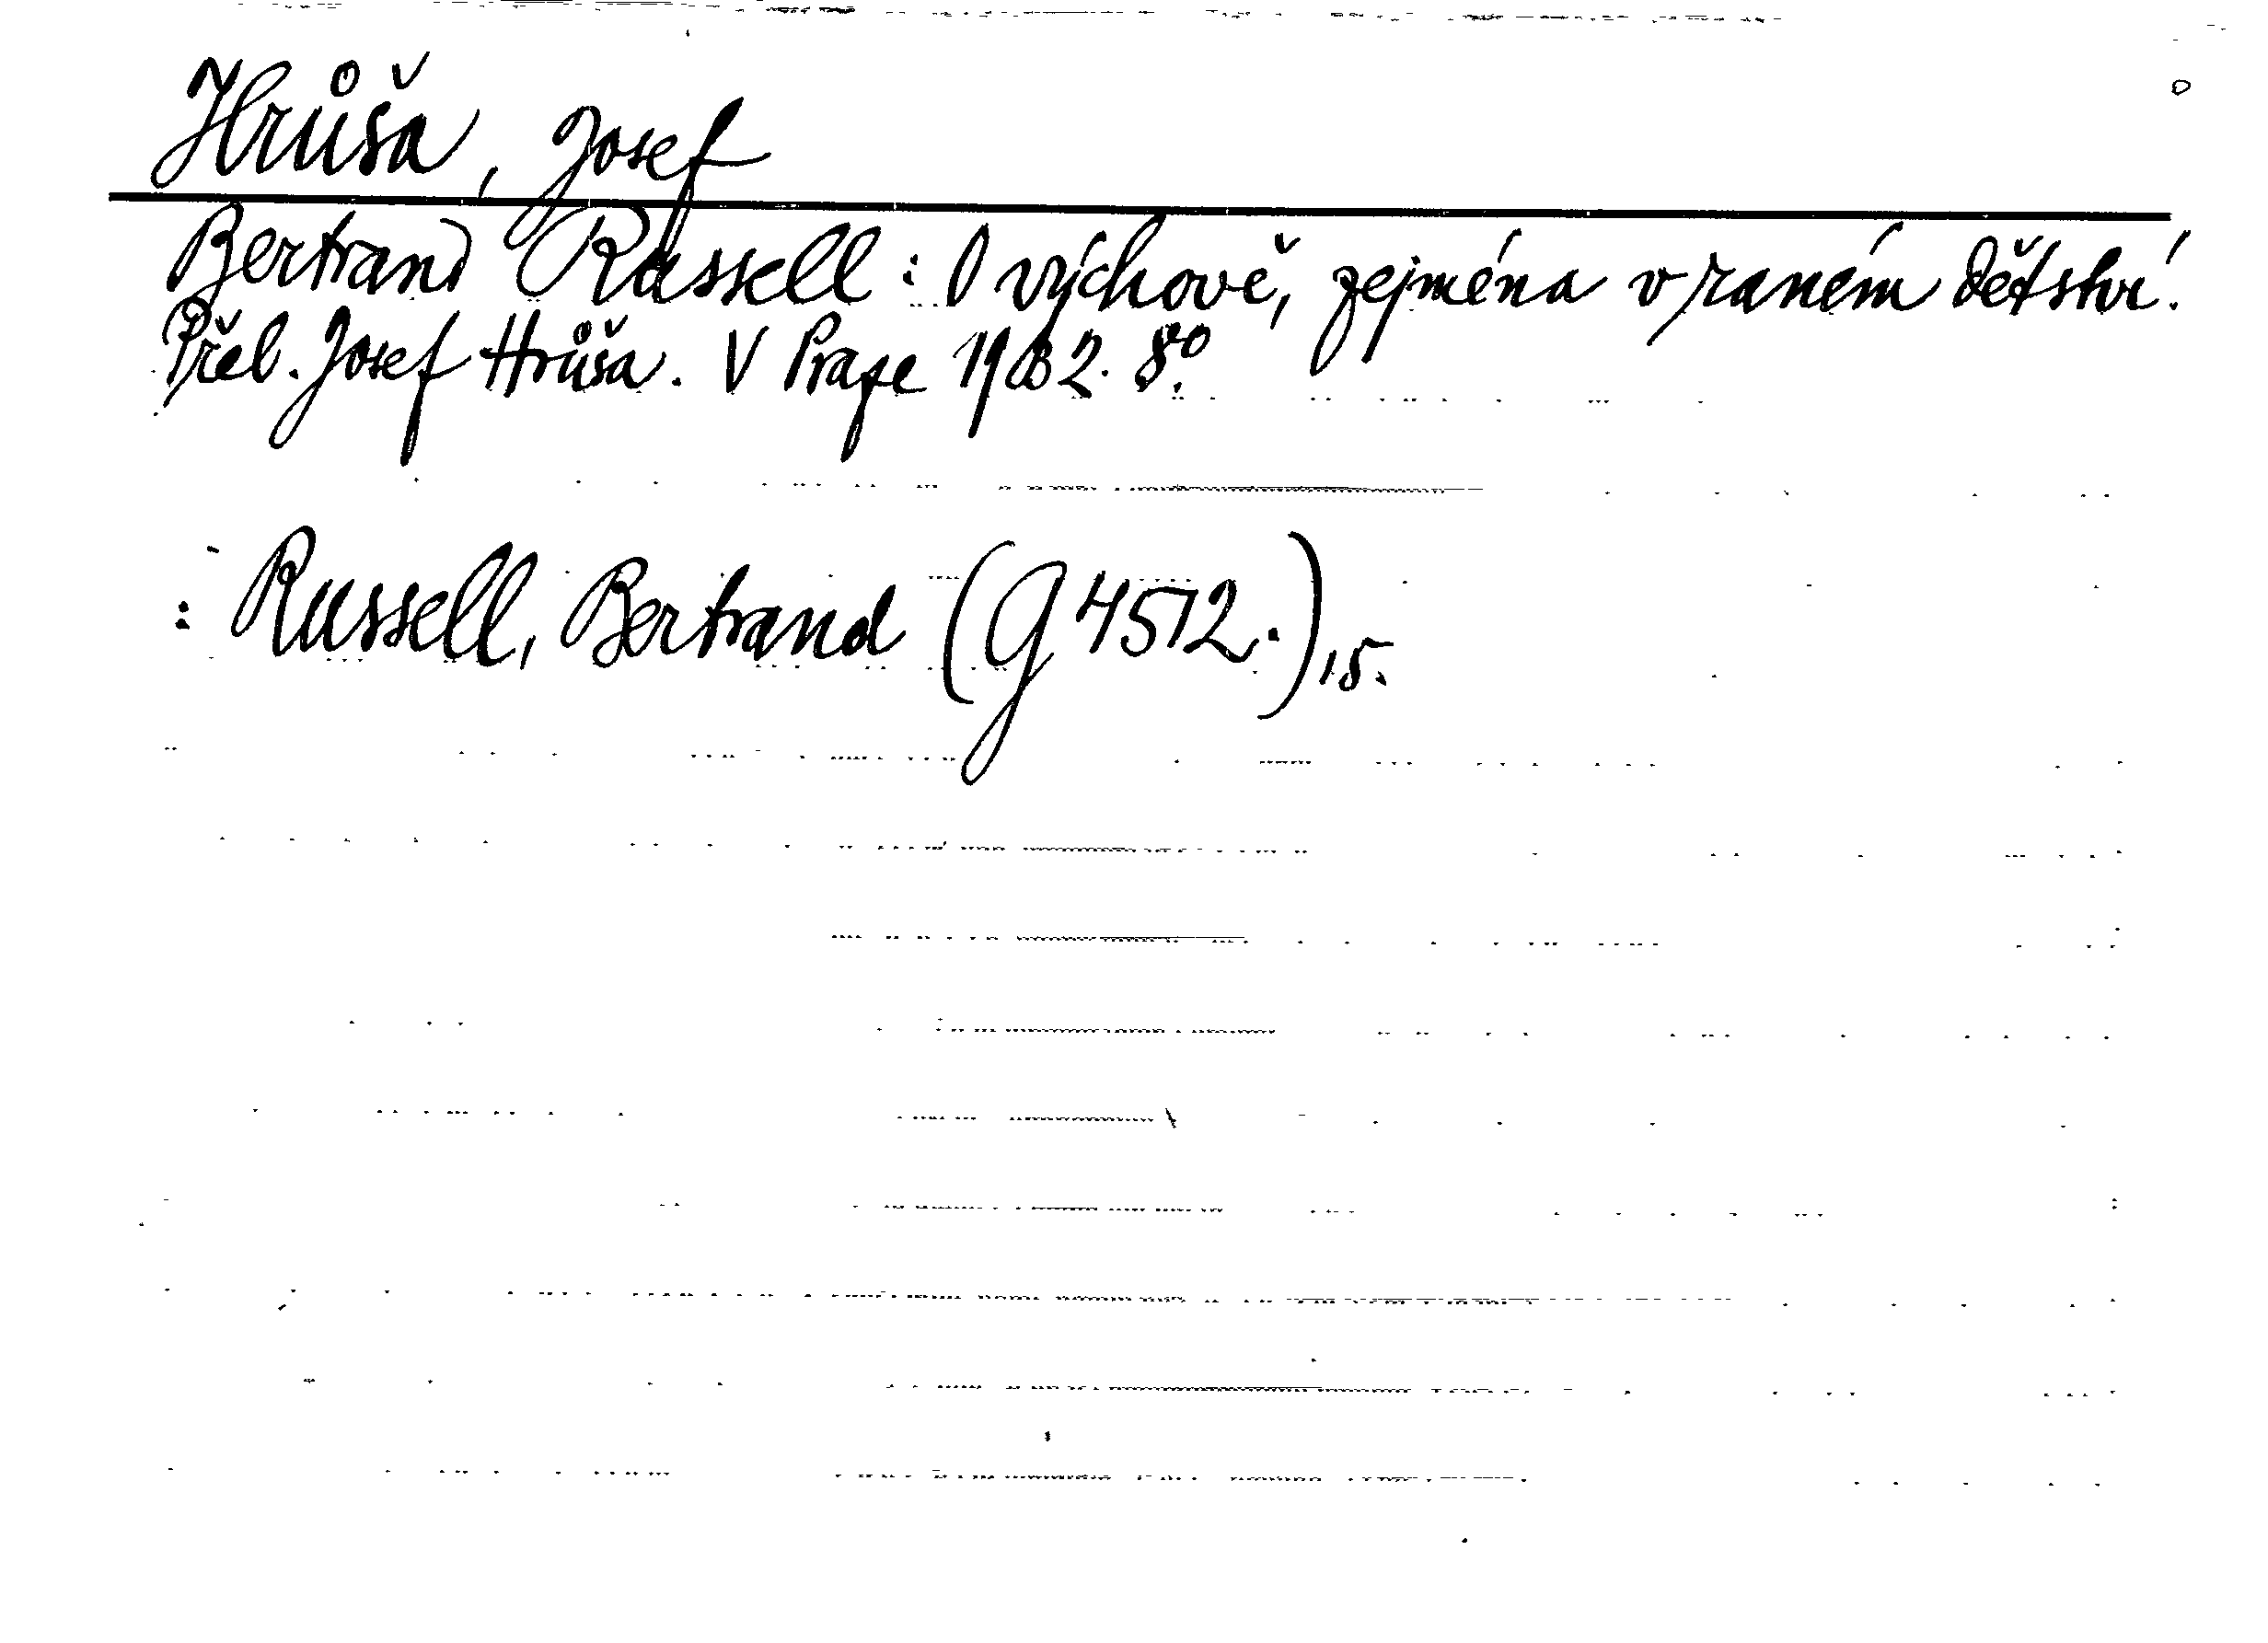 Hrůša, Josef
Bertrand Russell: O výchově, zejména v raném dětství.
Přel. Josef Hrůša. V Praze 1932. 8°.
: Russell, Bertrand (G 4512.),5.